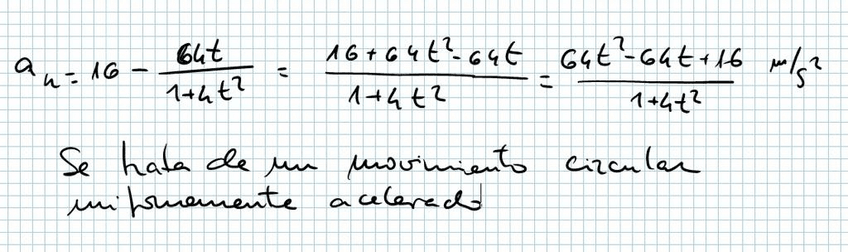 aₙ = 16 - 64t/(1+4t²) = (16+64t²-64t)/(1+4t²) = (64t²-64t+16)/(1+4t²) m/s²
Se trata de un movimiento circular
uniformemente acelerado